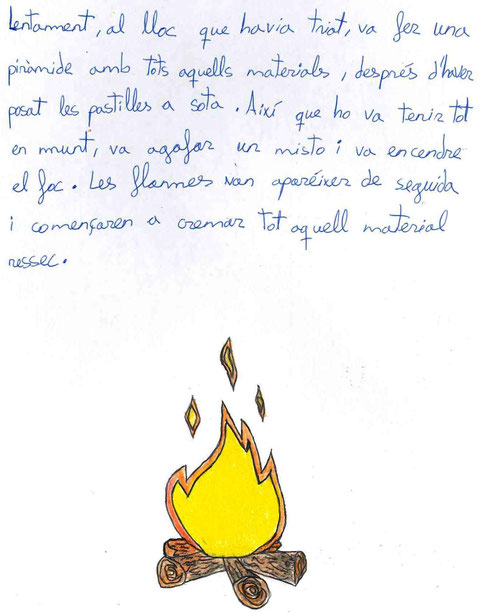 Lentament, al lloc que havia triat, va fer una
piràmide amb tots aquells materials, després d'haver
posat les pastilles a sota. Així que ho va tenir tot
en munt, va agafar un misto i va encendre
el foc. Les flames van aparéixer de seguida
i començaren a cremar tot aquell material
ressec.